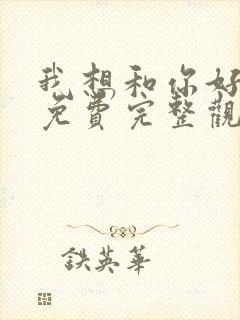 我想和你好
免费完整觀
鉄英華